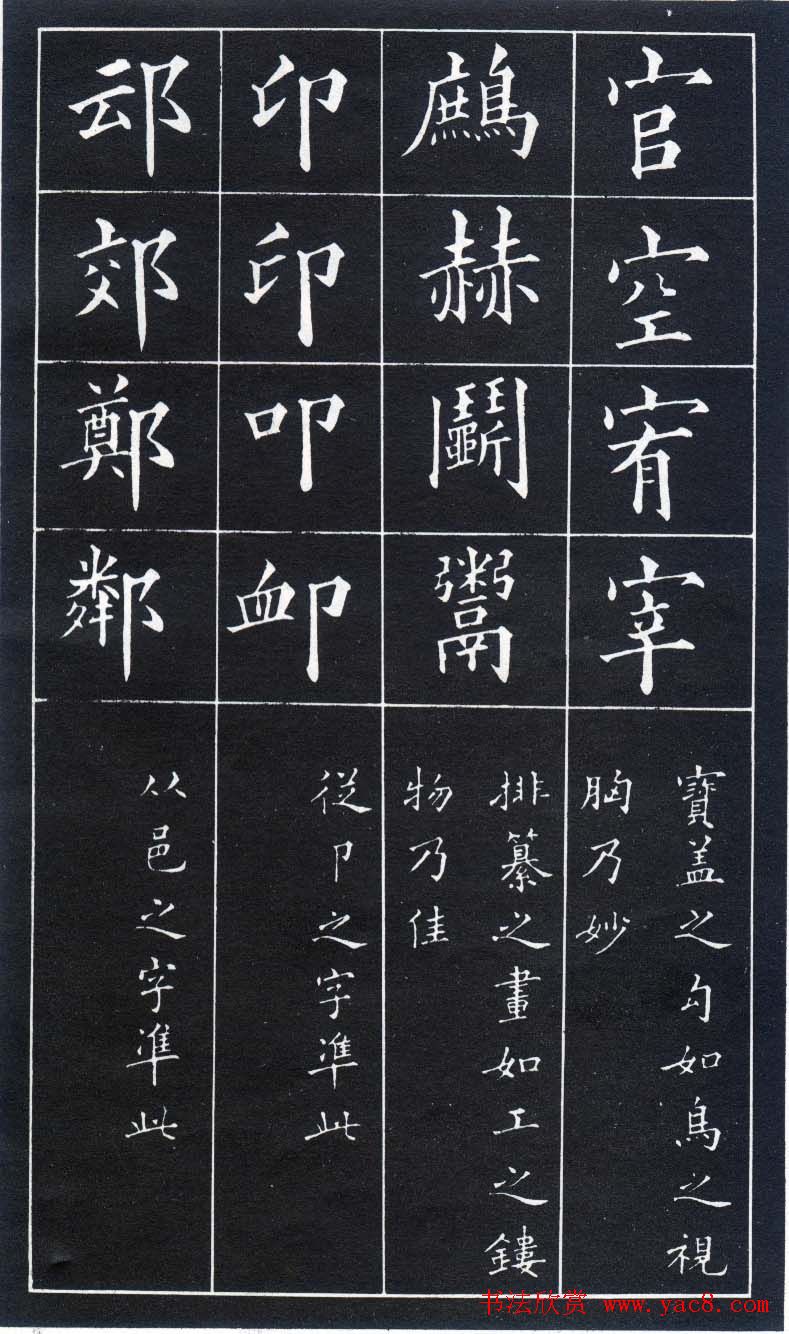 官
空
宥
宰
寶盖之勾如鳥之視
胸乃妙
鷓
赫
鬭
鬻
排纂之畫如工之鏤
物乃佳
印
印
叩
卹
從卩之字準此
邧
郊
鄭
鄰
从邑之字準此
书法欣赏 www.yac8.com